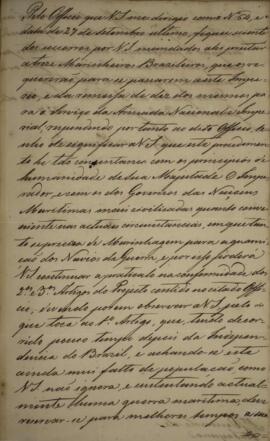 Pelo Officio que V.S. me dirigio com o Nº 52, e
data de 27 de Setembro ultimo, fiquei sciente
dos socorros por V.S. mandados aos
onze Marinheiros Brazileiros, que os re-
quererão para se passarem a este Impe-
rio, e da remessa de dez dos mesmos pa-
ra o Serviço da Armada Nacional e Impe-
rial, respondendo portanto ao dito Officio, te-
nho de significar a V.S. que este procedimen-
to he tão consentaneo com os principios de
humanidade de Sua Magestade O Impe-
rador, e com os dos Governos das Nações
Maritimas mais civilisadas quanto conve-
niente nas actuaes circunstancias, em que tan-
to se precisa de Marinhagem para a guarni-
ção dos Navios de Guerra, e por isso poderá
V.S. continuar a pratical-o na conformidade dos
2º e 3º Artigos do Projecto contido no citado Offi-
cio, devendo porem observar a V.S. pelo
que toca ao 1º Artigo, que, tendo de-
corrido pouco tempo depois da Indepen-
dencia do Brazil, e achando-se este
ainda mui falto de população como
V.S. não ignora, e sustentando actual-
mente huma guerra maritima, deve
reservar-se para melhores tempos a sua